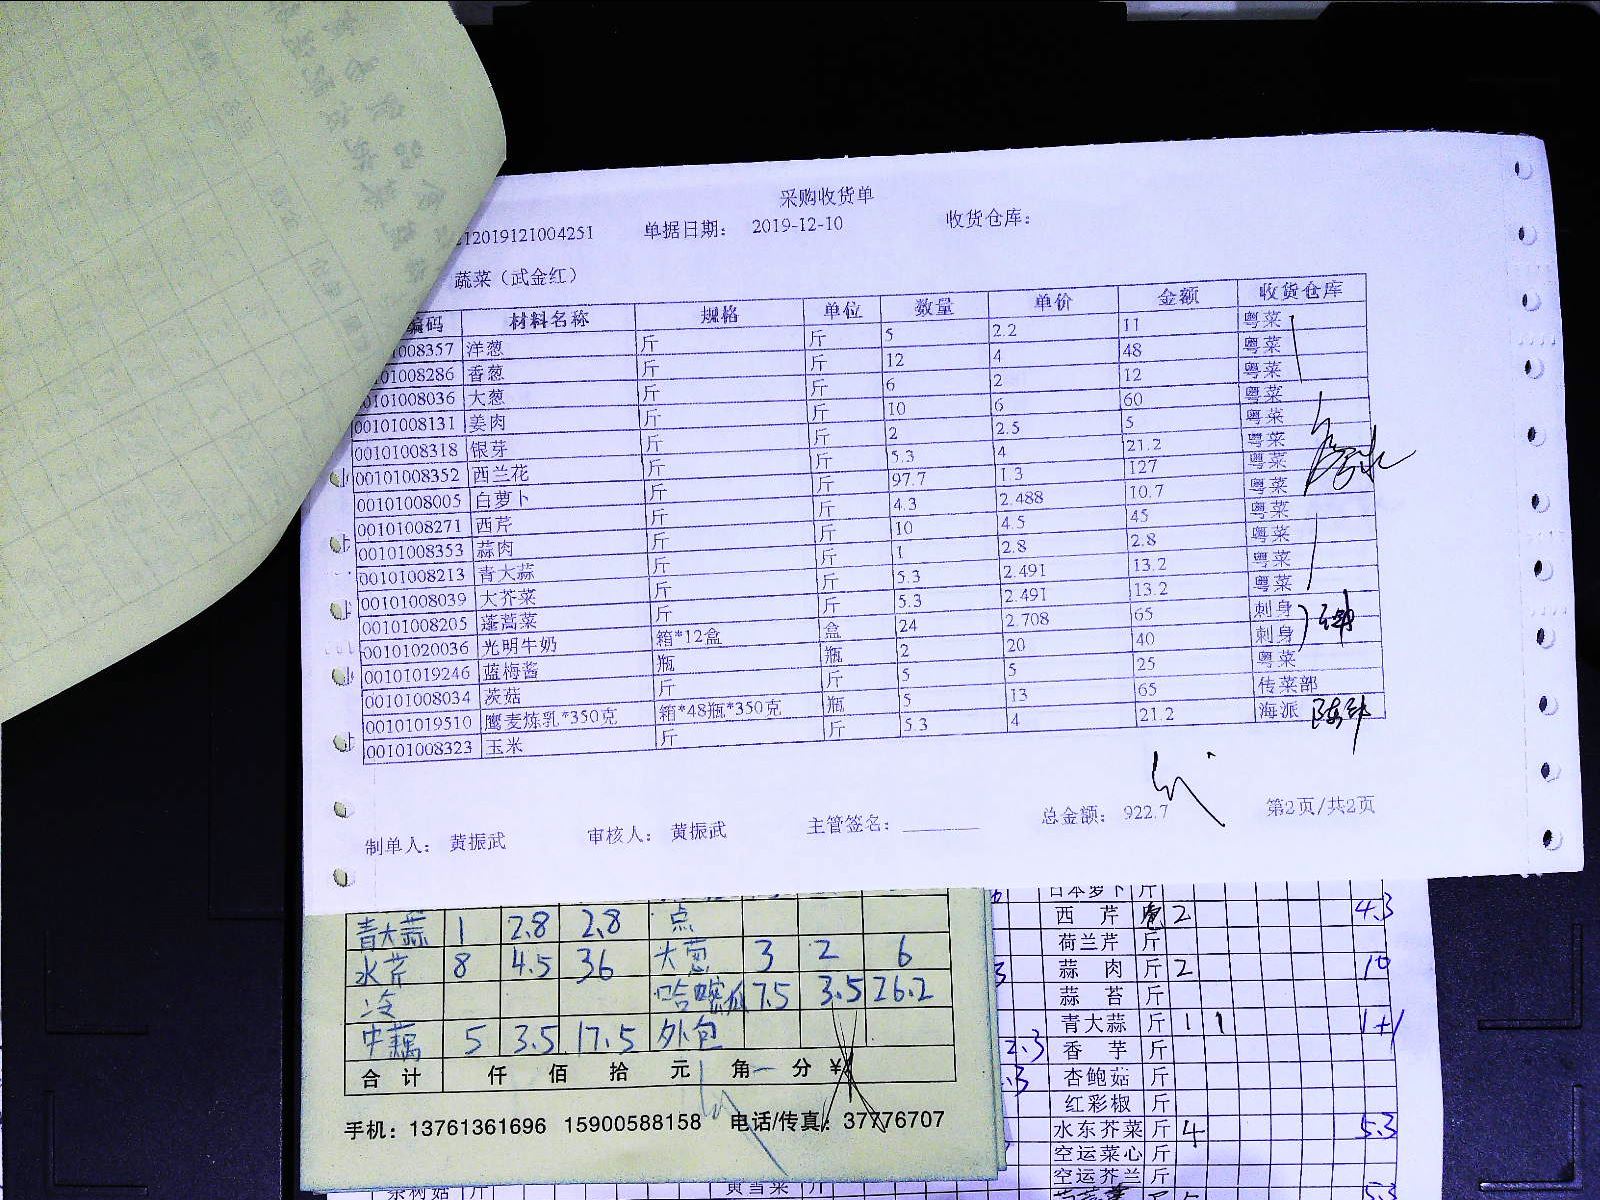 采购收货单
12019121004251 单据日期： 2019-12-10 收货仓库：
蔬菜（武金红）
编码 材料名称 规格 单位 数量 单价 金额 收货仓库
01008357 洋葱 斤 斤 5 2.2 11 粤菜
0101008286 香葱 斤 斤 12 4 48 粤菜
00101008036 大葱 斤 斤 6 2 12 粤菜
00101008131 姜肉 斤 斤 10 6 60 粤菜
00101008318 银芽 斤 斤 2 2.5 5 粤菜
00101008352 西兰花 斤 斤 5.3 4 21.2 粤菜
00101008005 白萝卜 斤 斤 97.7 1.3 127 粤菜
00101008271 西芹 斤 斤 4.3 2.488 10.7 粤菜
00101008353 蒜肉 斤 斤 10 4.5 45 粤菜
00101008213 青大蒜 斤 斤 1 2.8 2.8 粤菜
00101008039 大芥菜 斤 斤 5.3 2.491 13.2 粤菜
00101008205 蓬蒿菜 斤 斤 5.3 2.491 13.2 粤菜
00101020036 光明牛奶 箱*12盒 盒 24 2.708 65 刺身
00101019246 蓝梅酱 瓶 瓶 2 20 40 刺身
00101008034 茨菇 斤 斤 5 5 25 粤菜
00101019510 鹰麦炼乳*350克 箱*48瓶*350克 瓶 5 13 65 传菜部
00101008323 玉米 斤 斤 5.3 4 21.2 海派
制单人： 黄振武 审核人： 黄振武 主管签名： 总金额： 922.7 第2页/共2页
青大蒜 1 2.8 2.8 点
水芹 8 4.5 36 大葱 3 2 6
冷 7.5 3.5 26.2
中藕 5 3.5 17.5 外包
合计 仟 佰 拾 元 角 分 ¥
手机：13761361696 15900588158 电话/传真：37776707
日本萝卜 斤
西芹 2 4.3
荷兰芹 斤
蒜肉 斤 2 10
蒜苔 斤
青大蒜 斤 1 1 1+1
香芋 斤
杏鲍菇 斤
红彩椒 斤
水东芥菜 斤 4 5.3
空运菜心 斤
空运芥兰 斤
茶树菇 斤 黄雪菜 斤